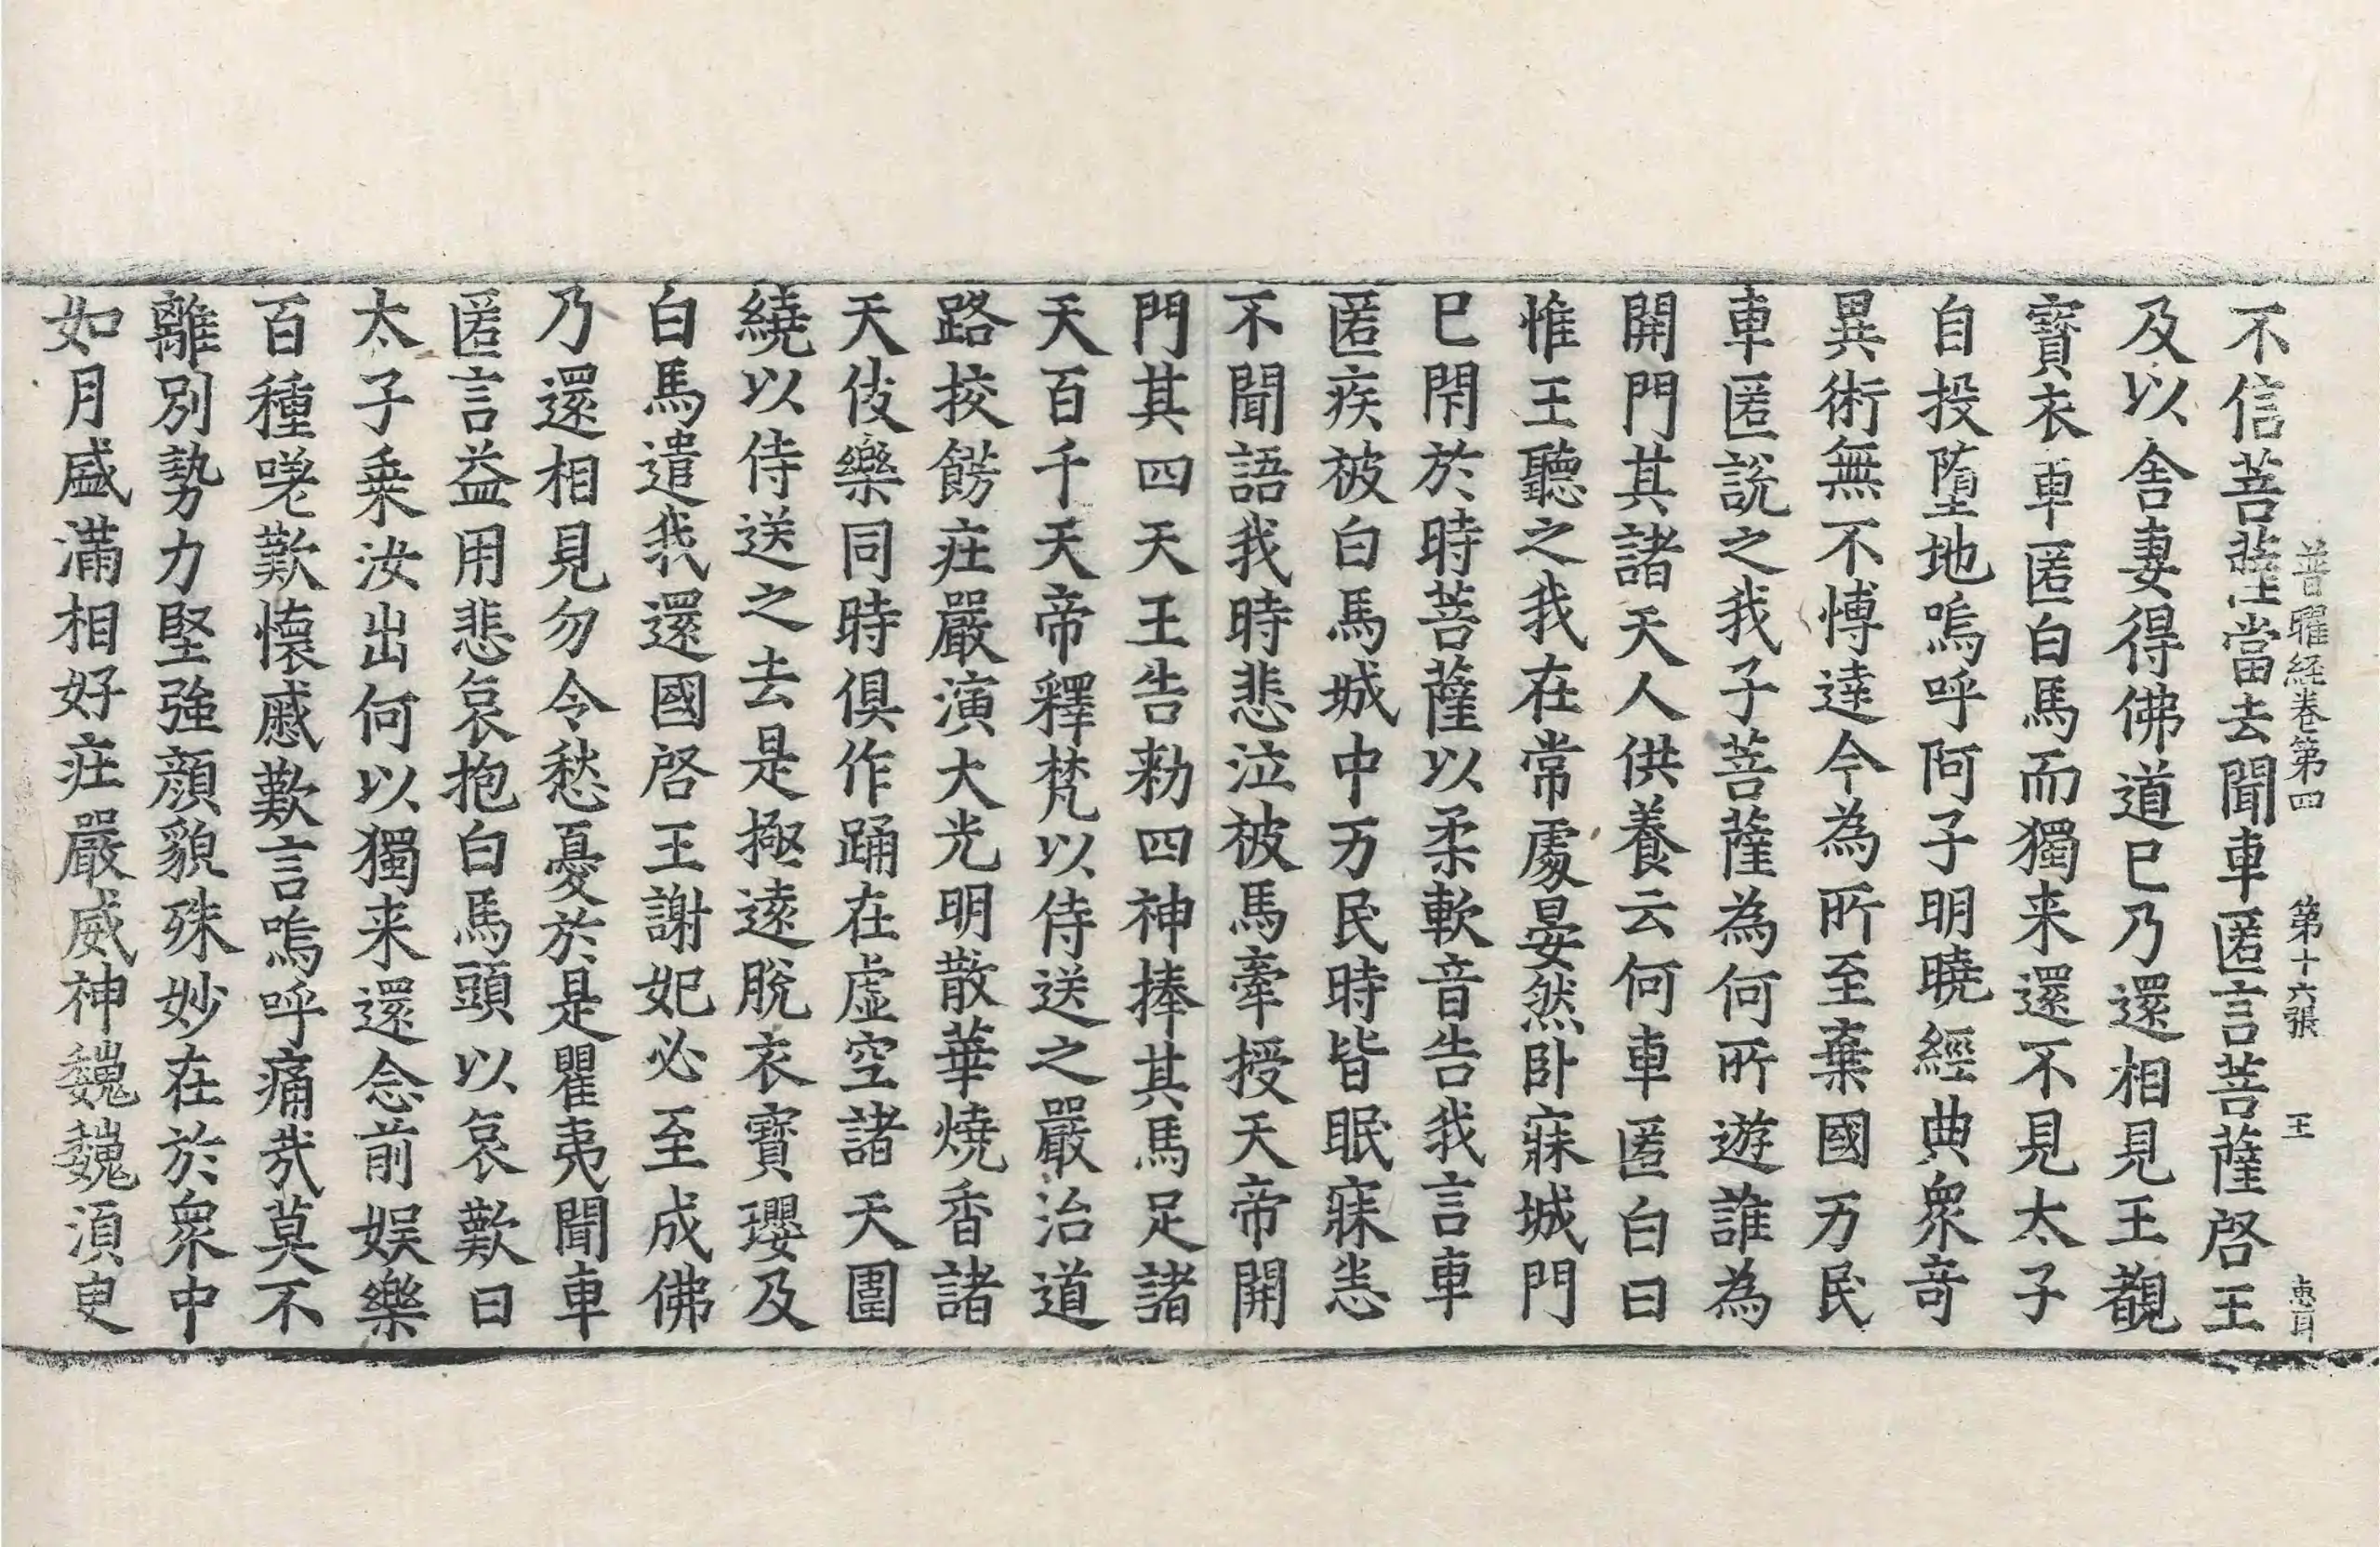 普曜経卷第四　第十六張　王　惠耳
不信菩薩當去聞車匿言菩薩啓王
及以舎妻得佛道已乃還相見王覩
寶衣車匿白馬而獨来還不見太子
自投墮地嗚呼阿子明曉經典衆竒
異術無不博達今為所至棄國万民
車匿說之我子菩薩為何所遊誰為
開門其諸天人供養云何車匿白曰
惟王聽之我在常處晏然卧寐城門
已閇於時菩薩以柔軟音告我言車
匿疾被白馬城中万民時皆眠寐恙
不聞語我時悲泣被馬牽授天帝開
門其四天王告勑四神捧其馬足諸
天百千天帝釋梵以侍送之嚴治道
路挍餝莊嚴演大光明散華燒香諸
天伎樂同時俱作踊在虛空諸天圍
繞以侍送之去是極遠脫衣寶瓔及
白馬遣我還國啓王謝妃必至成佛
乃還相見勿令愁憂於是瞿夷聞車
匿言益用悲哀抱白馬頭以哀歎曰
太子乗汝出何以獨来還念前娯樂
百種嗟歎懷慼歎言嗚呼痛㢤莫不
離別勢力堅強顏貌殊妙在於衆中
如月盛滿相好莊嚴威神巍巍湏臾